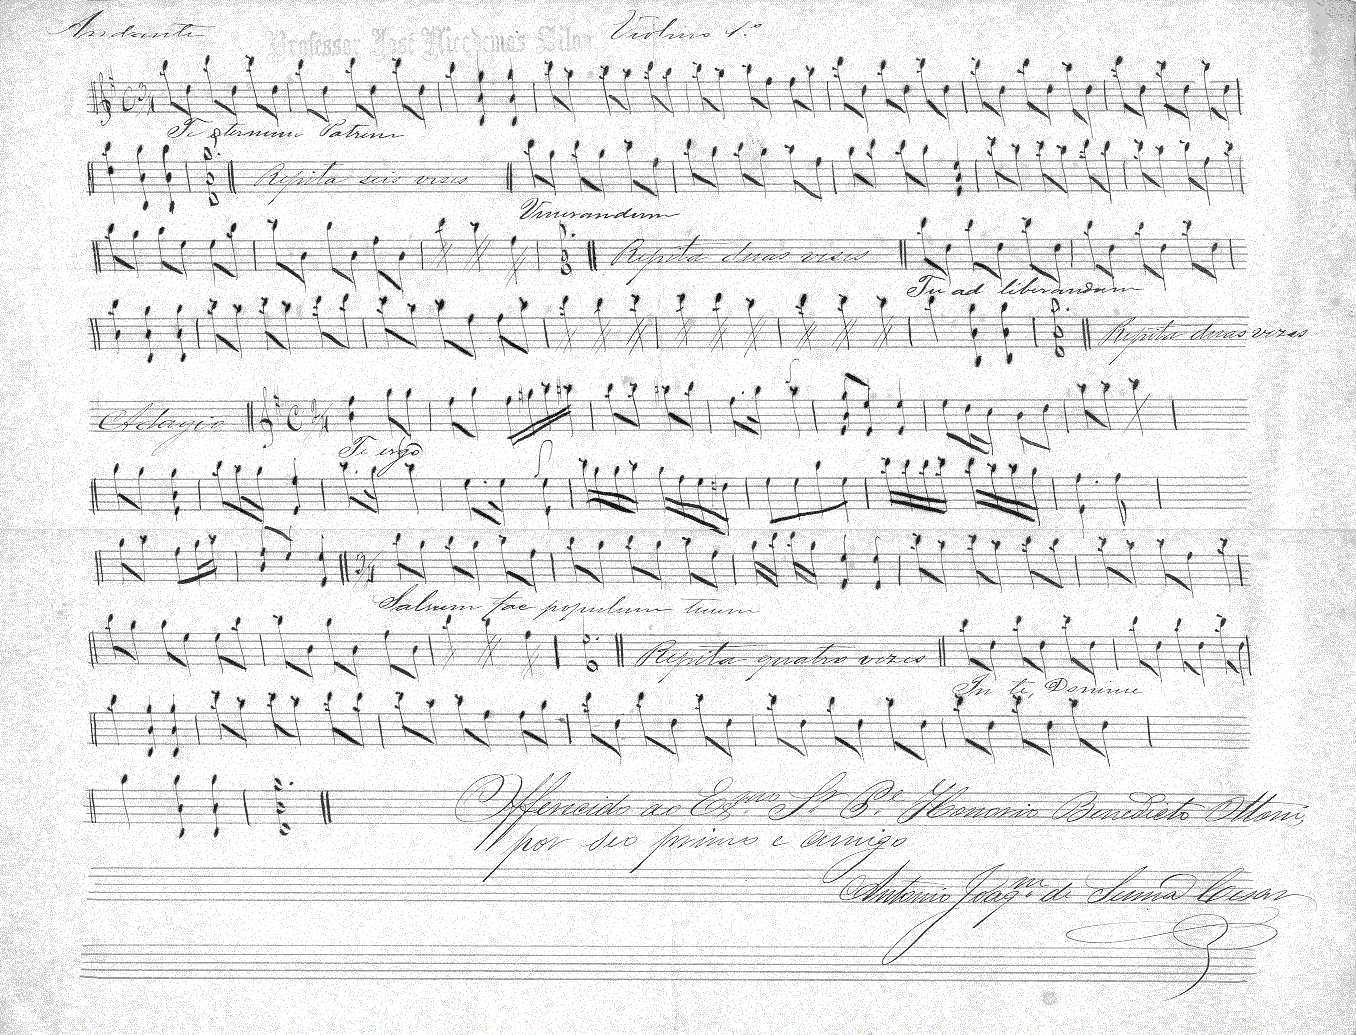 Andante Violino 1.º
Professor José Nicodemos Silva
Te æternum Patrem
Repita seis vises
Venerandum
Repita duas vises
Tu ad liberandum
Repita duas vezes
Adagio
Te ergo
Salvum fac populum tuum
Repita quatro vezes
In te, Domine
Offerecido ao Exmo. Sr. Pe. Honorio Benedicto Ottoni,
por seo primo e amigo
Antonio Joaqm. de Cesar